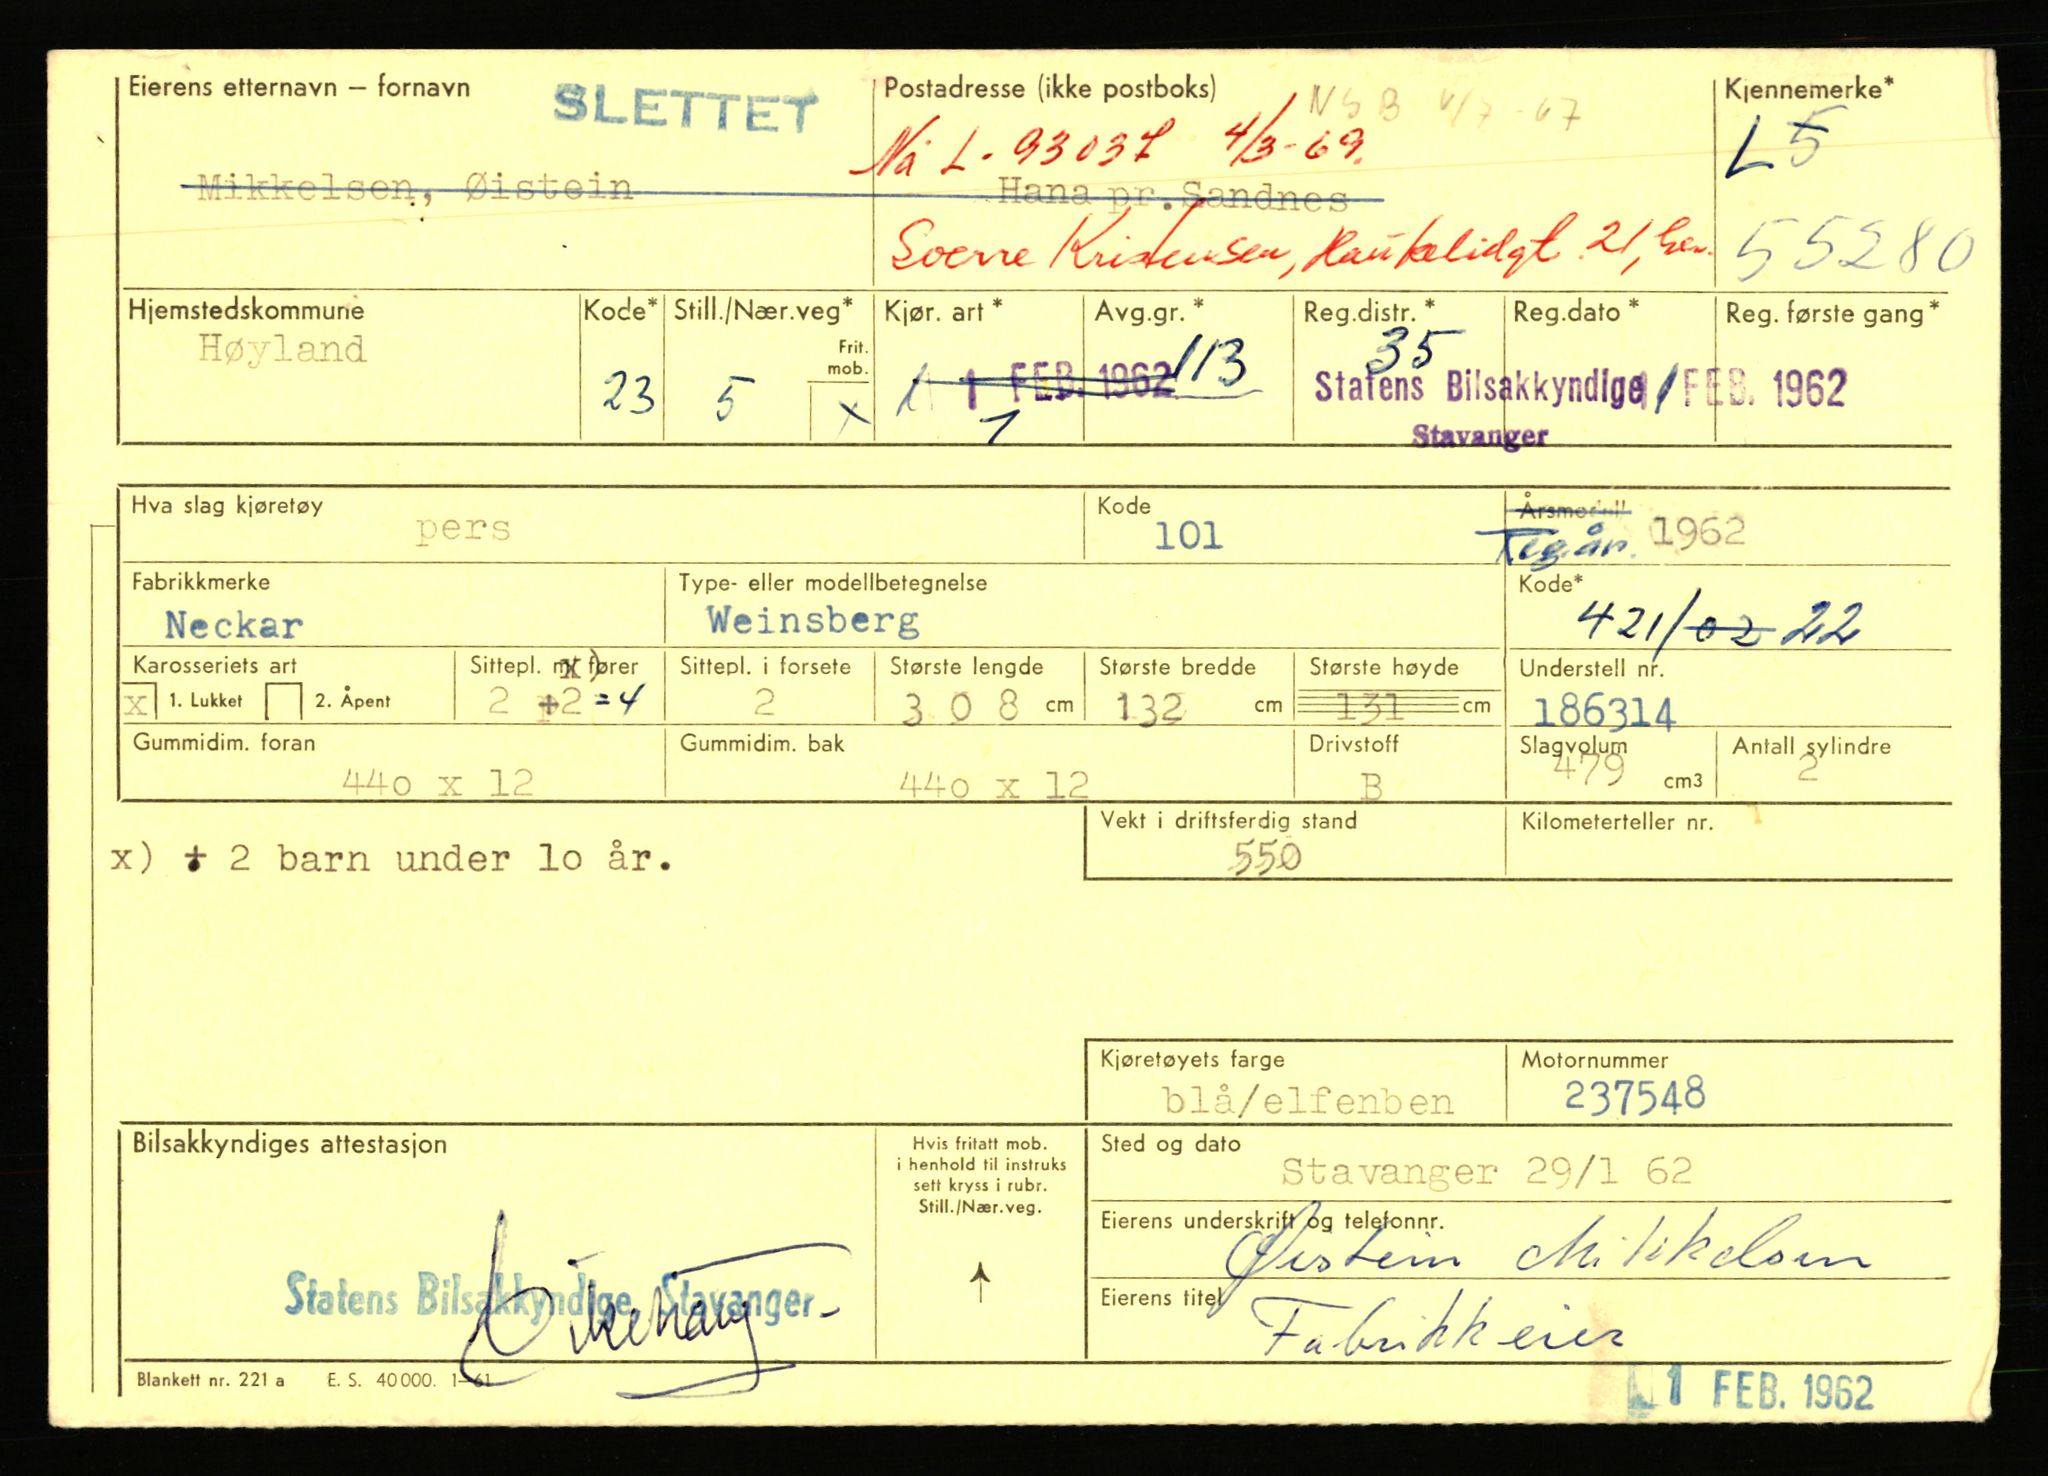 Eierens etternavn – fornavn
SLETTET
Postadresse (ikke postboks)
NSB 4/7-67
Kjennemerke*
Nå L- 93037 4/3-69.
L 5
Mikkelsen, Øistein
Hana pr. Sandnes
Sverre Kristensen, Haukelidgt. 21,
55280
Hjemstedskommune
Kode*
Still./Nær.veg*
Kjør. art *
Avg.gr. *
Reg.distr. *
Reg.dato *
Reg. første gang *
Høyland
Frit. mob.
23
5
x
1 FEB. 1962
1
113
35
Statens Bilsakkyndige
Stavanger
1 FEB. 1962
Hva slag kjøretøy
pers
Kode
101
Årsmodell
Reg.år. 1962
Fabrikkmerke
Neckar
Type- eller modellbetegnelse
Weinsberg
Kode*
421/02 22
Karosseriets art
x 1. Lukket 2. Åpent
Sittepl. m. fører x)
2 +2 =4
Sittepl. i forsete
2
Største lengde
308 cm
Største bredde
132 cm
Største høyde
131 cm
Understell nr.
186314
Gummidim. foran
44o x 12
Gummidim. bak
44o x 12
Drivstoff
B
Slagvolum
479 cm3
Antall sylindre
2
Vekt i driftsferdig stand
550
Kilometerteller nr.
x) + 2 barn under lo år.
Kjøretøyets farge
blå/elfenben
Motornummer
237548
Bilsakkyndiges attestasjon
Hvis fritatt mob.
i henhold til instruks
sett kryss i rubr.
Still./Nær.veg.
Sted og dato
Stavanger 29/1 62
Eierens underskrift og telefonnr.
Øistein Mikkelsen
Statens Bilsakkyndige Stavanger
Eierens titel
Fabrikkeier
Blankett nr. 221 a E. S. 40000. 1–61
1 FEB. 1962